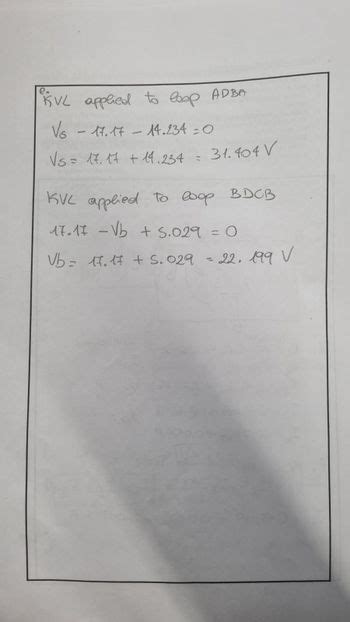 e.
KVL applied to loop ADBA
Vs - 17.17 - 14.234 = 0
Vs = 17.17 + 14.234 = 31.404 V
KVL applied to loop BDCB
17.17 - Vb + 5.029 = 0
Vb = 17.17 + 5.029 = 22.199 V